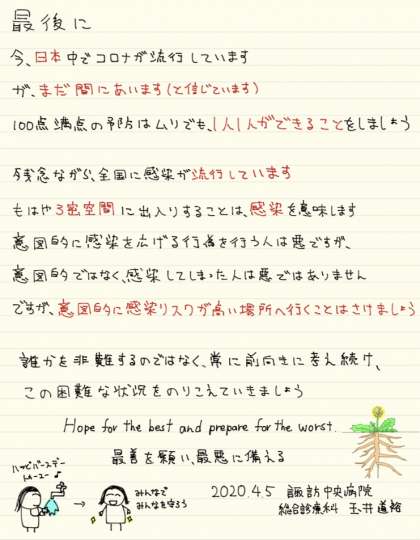 最後に
今、日本中でコロナが流行しています
が、まだ間にあいます(と信じています)
100点満点の予防はムリでも、1人1人ができることをしましょう
残念ながら、全国に感染が流行しています
もはや3密空間に出入りすることは、感染を意味します
意図的に感染を広げる行為を行う人は悪ですが、
意図的ではなく、感染してしまった人は悪ではありません
ですが、意図的に感染リスクが高い場所へ行くことはさけましょう
誰かを非難するのではなく、常に前向きに考え続け、
この困難な状況をのりこえていきましょう
Hope for the best and prepare for the worst.
最善を願い、最悪に備える
ハッピバースデー
トゥーユー♪
→
みんなで
みんなを守ろう
2020.4.5 諏訪中央病院
総合診療科 玉井道裕